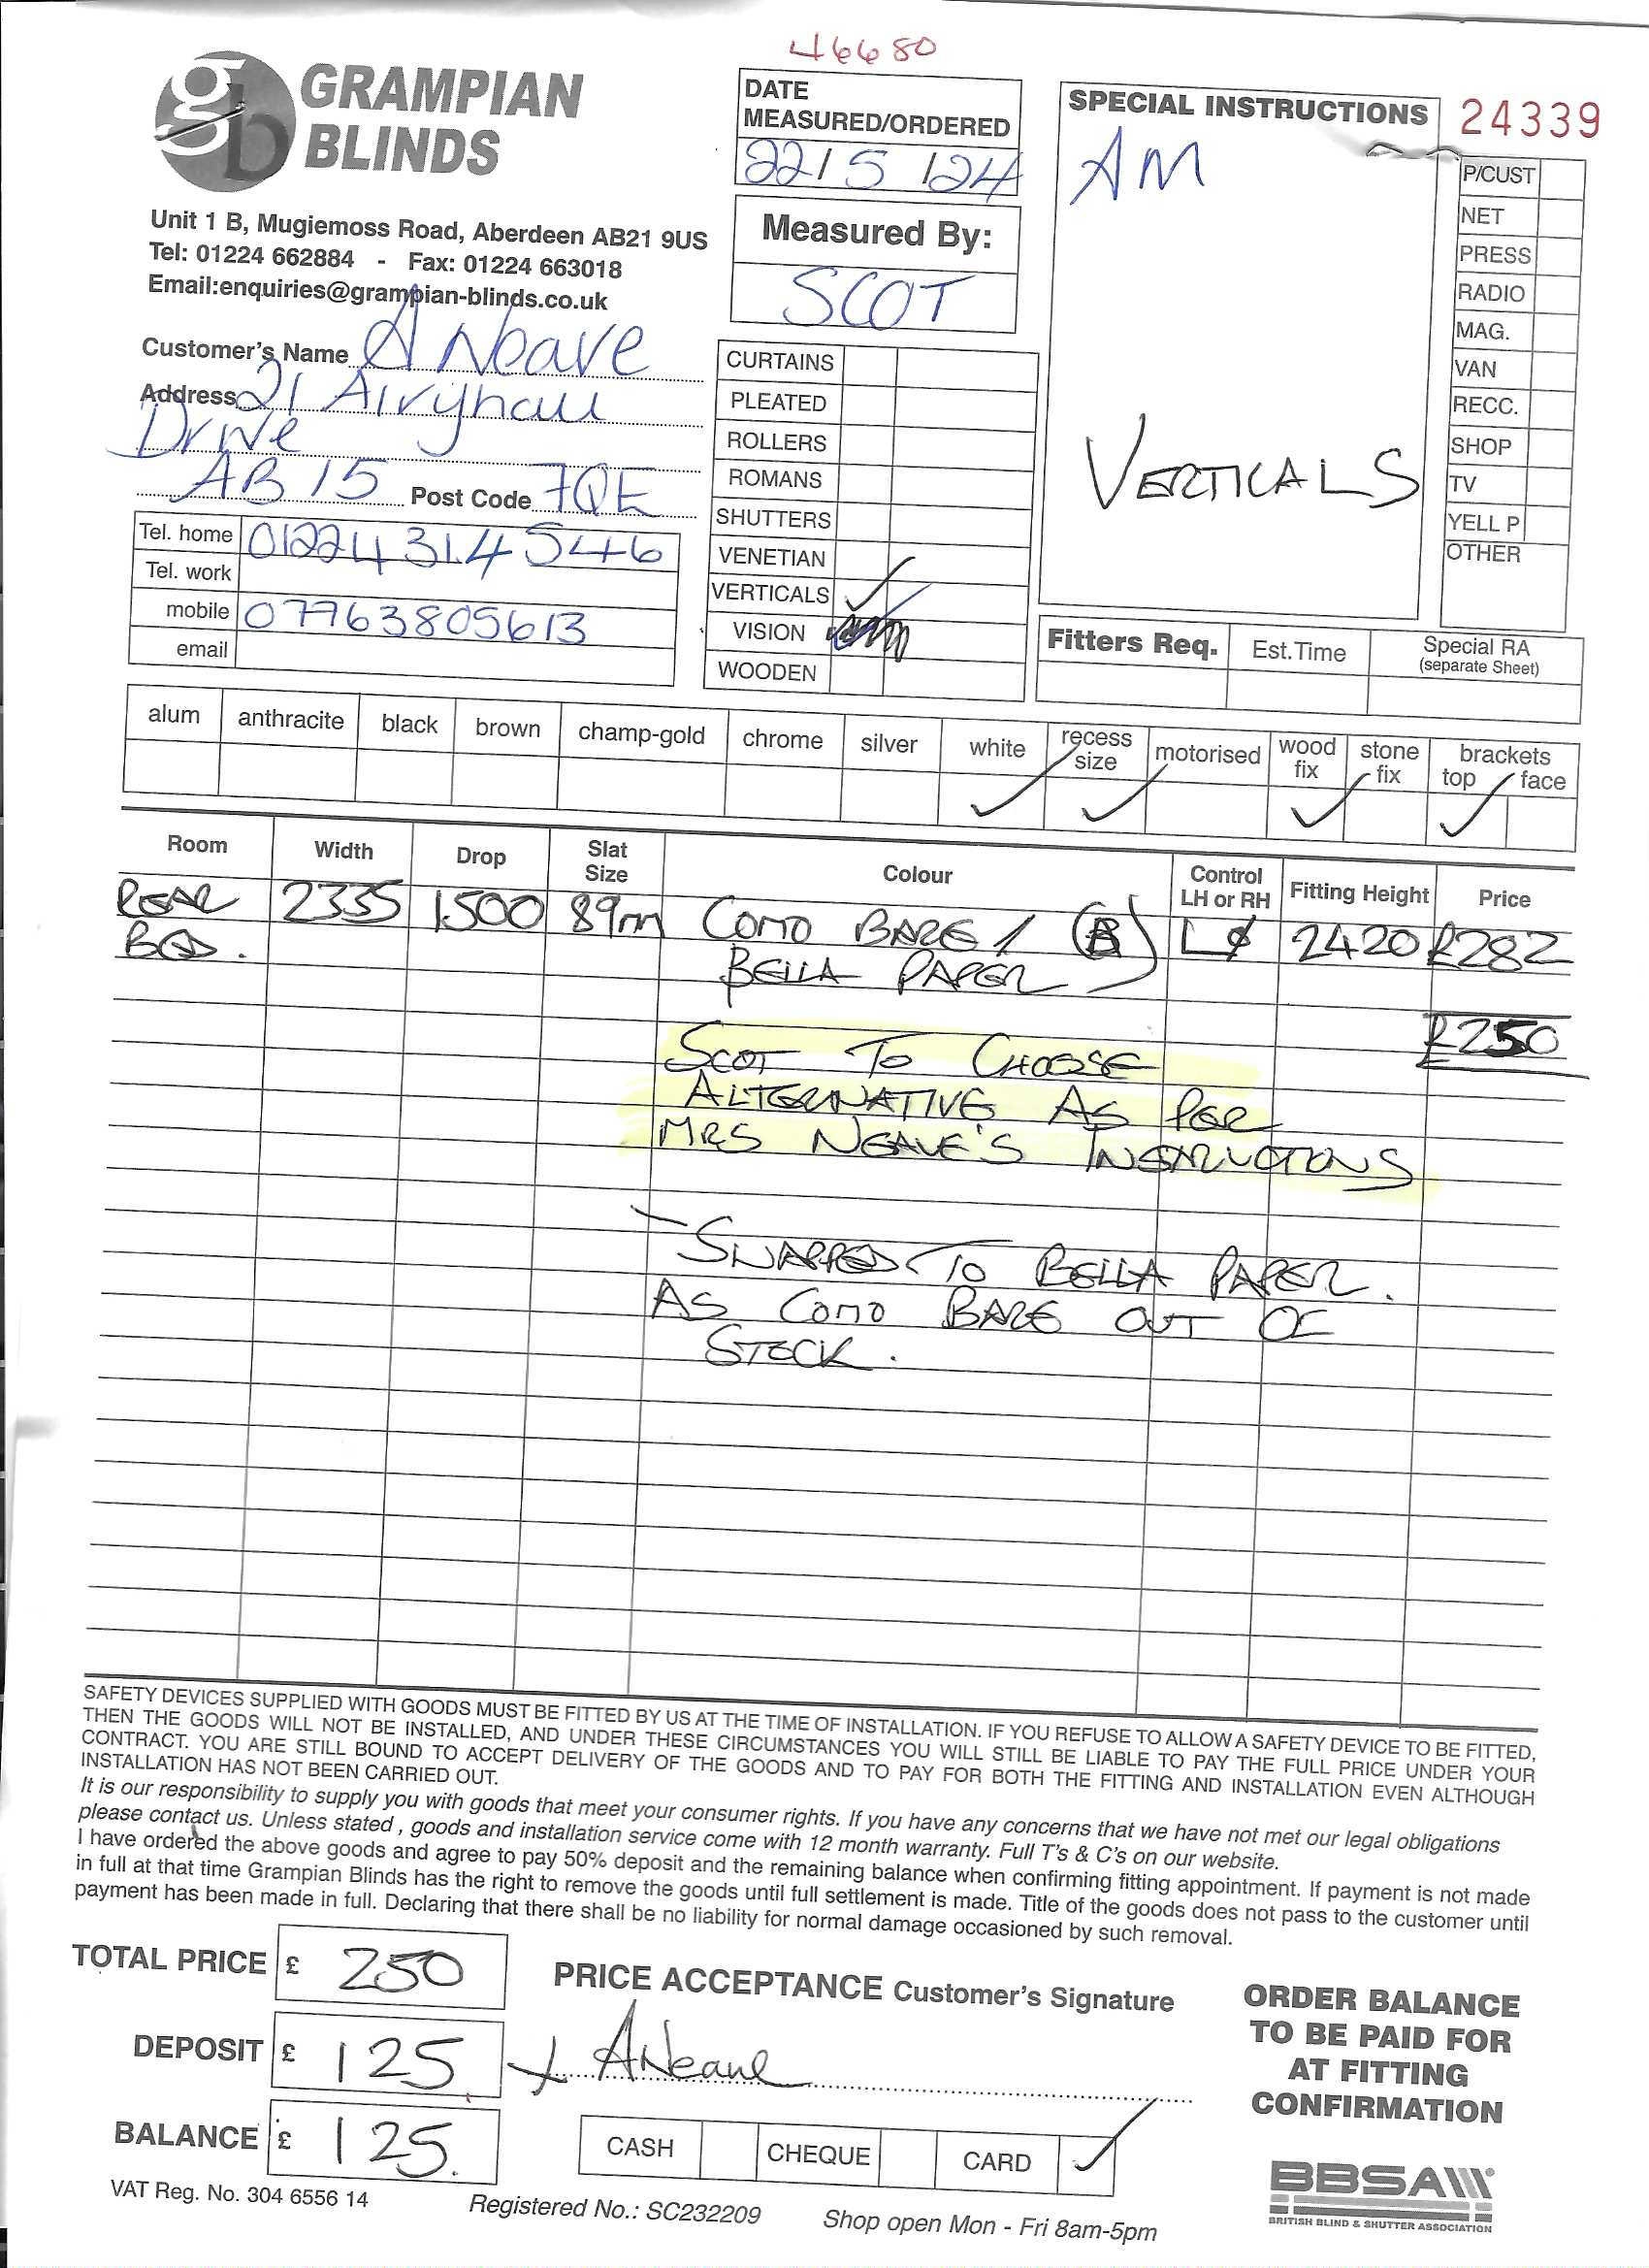 46680
GRAMPIAN
BLINDS
Unit 1 B, Mugiemoss Road, Aberdeen AB21 9US
Tel: 01224 662884 - Fax: 01224 663018
Email:enquiries@grampian-blinds.co.uk
DATE
MEASURED/ORDERED
22/5/24
Measured By:
SCOT
SPECIAL INSTRUCTIONS
AM
VERTICALS
24339
P/CUST
NET
PRESS
RADIO
MAG.
VAN
RECC.
SHOP
TV
YELL P
OTHER
Customer's Name A Neave
Address 21 Airyhall
Drive
AB15 Post Code 7QE
Tel. home 01224 314546
Tel. work
mobile 07763805613
email
CURTAINS
PLEATED
ROLLERS
ROMANS
SHUTTERS
VENETIAN
VERTICALS ✓
VISION
WOODEN
Fitters Req. Est.Time Special RA
(separate Sheet)
alum anthracite black brown champ-gold chrome silver white recess size motorised wood fix stone fix brackets top face
✓ ✓ ✓ ✓
Room Width Drop Slat Size Colour Control LH or RH Fitting Height Price
REAR 2335 1500 89m COMO BARE / (B) L 2420 £282
BED. BELLA PAPER
£250
SCOT TO CHOOSE
ALTERNATIVE AS PER
MRS NEAVE'S INSTRUCTIONS
- SWAPPED TO BELLA PAPER.
AS COMO BARE OUT OF
STOCK.
SAFETY DEVICES SUPPLIED WITH GOODS MUST BE FITTED BY US AT THE TIME OF INSTALLATION. IF YOU REFUSE TO ALLOW A SAFETY DEVICE TO BE FITTED,
THEN THE GOODS WILL NOT BE INSTALLED, AND UNDER THESE CIRCUMSTANCES YOU WILL STILL BE LIABLE TO PAY THE FULL PRICE UNDER YOUR
CONTRACT. YOU ARE STILL BOUND TO ACCEPT DELIVERY OF THE GOODS AND TO PAY FOR BOTH THE FITTING AND INSTALLATION EVEN ALTHOUGH
INSTALLATION HAS NOT BEEN CARRIED OUT.
It is our responsibility to supply you with goods that meet your consumer rights. If you have any concerns that we have not met our legal obligations
please contact us. Unless stated , goods and installation service come with 12 month warranty. Full T's & C's on our website.
I have ordered the above goods and agree to pay 50% deposit and the remaining balance when confirming fitting appointment. If payment is not made
in full at that time Grampian Blinds has the right to remove the goods until full settlement is made. Title of the goods does not pass to the customer until
payment has been made in full. Declaring that there shall be no liability for normal damage occasioned by such removal.
TOTAL PRICE £ 250
DEPOSIT £ 125
BALANCE £ 125.
PRICE ACCEPTANCE Customer's Signature
x ANeave
CASH CHEQUE CARD ✓
ORDER BALANCE
TO BE PAID FOR
AT FITTING
CONFIRMATION
BBSA
BRITISH BLIND & SHUTTER ASSOCIATION
VAT Reg. No. 304 6556 14
Registered No.: SC232209
Shop open Mon - Fri 8am-5pm